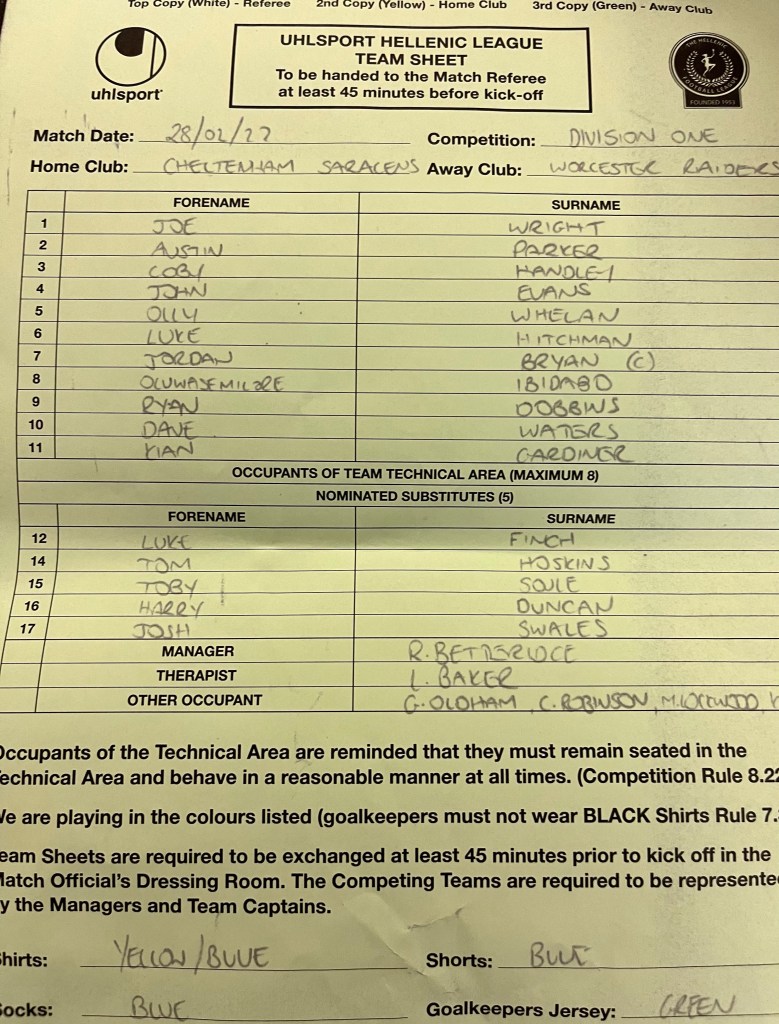 Top Copy (White) - Referee 2nd Copy (Yellow) - Home Club 3rd Copy (Green) - Away Club
uhlsport
UHLSPORT HELLENIC LEAGUE
TEAM SHEET
To be handed to the Match Referee
at least 45 minutes before kick-off
THE HELLENIC
FOOTBALL LEAGUE
FOUNDED 1953
Match Date: 28/02/22 Competition: DIVISION ONE
Home Club: CHELTENHAM SARACENS Away Club: WORCESTER RAIDERS
FORENAME SURNAME
1 JOE WRIGHT
2 AUSTIN PARKER
3 COBY HANDLEY
4 JOHN EVANS
5 OLLY WHELAN
6 LUKE HITCHMAN
7 JORDAN BRYAN (C)
8 OLUWASEMILORE IBIDAPO
9 RYAN DOBBINS
10 DAVE WATERS
11 KIAN GARDINER
OCCUPANTS OF TEAM TECHNICAL AREA (MAXIMUM 8)
NOMINATED SUBSTITUTES (5)
FORENAME SURNAME
12 LUKE FINCH
14 TOM HOSKINS
15 TOBY SOULE
16 HARRY DUNCAN
17 JOSH SWALES
MANAGER R. BETTERIDGE
THERAPIST L. BAKER
OTHER OCCUPANT G. OLDHAM, C. ROBINSON, M. LOCKWOOD,
Occupants of the Technical Area are reminded that they must remain seated in the
echnical Area and behave in a reasonable manner at all times. (Competition Rule 8.22
We are playing in the colours listed (goalkeepers must not wear BLACK Shirts Rule 7.
eam Sheets are required to be exchanged at least 45 minutes prior to kick off in the
Match Official's Dressing Room. The Competing Teams are required to be represente
y the Managers and Team Captains.
hirts: YELLOW/BLUE Shorts: BLUE
ocks: BLUE Goalkeepers Jersey: GREEN